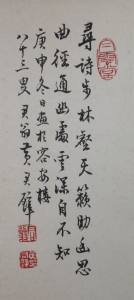 尋詩步林壑天籟助幽思
曲徑通幽處雲深自不知
庚申冬日畫於容安樓
八十三叟君翁黃君璧